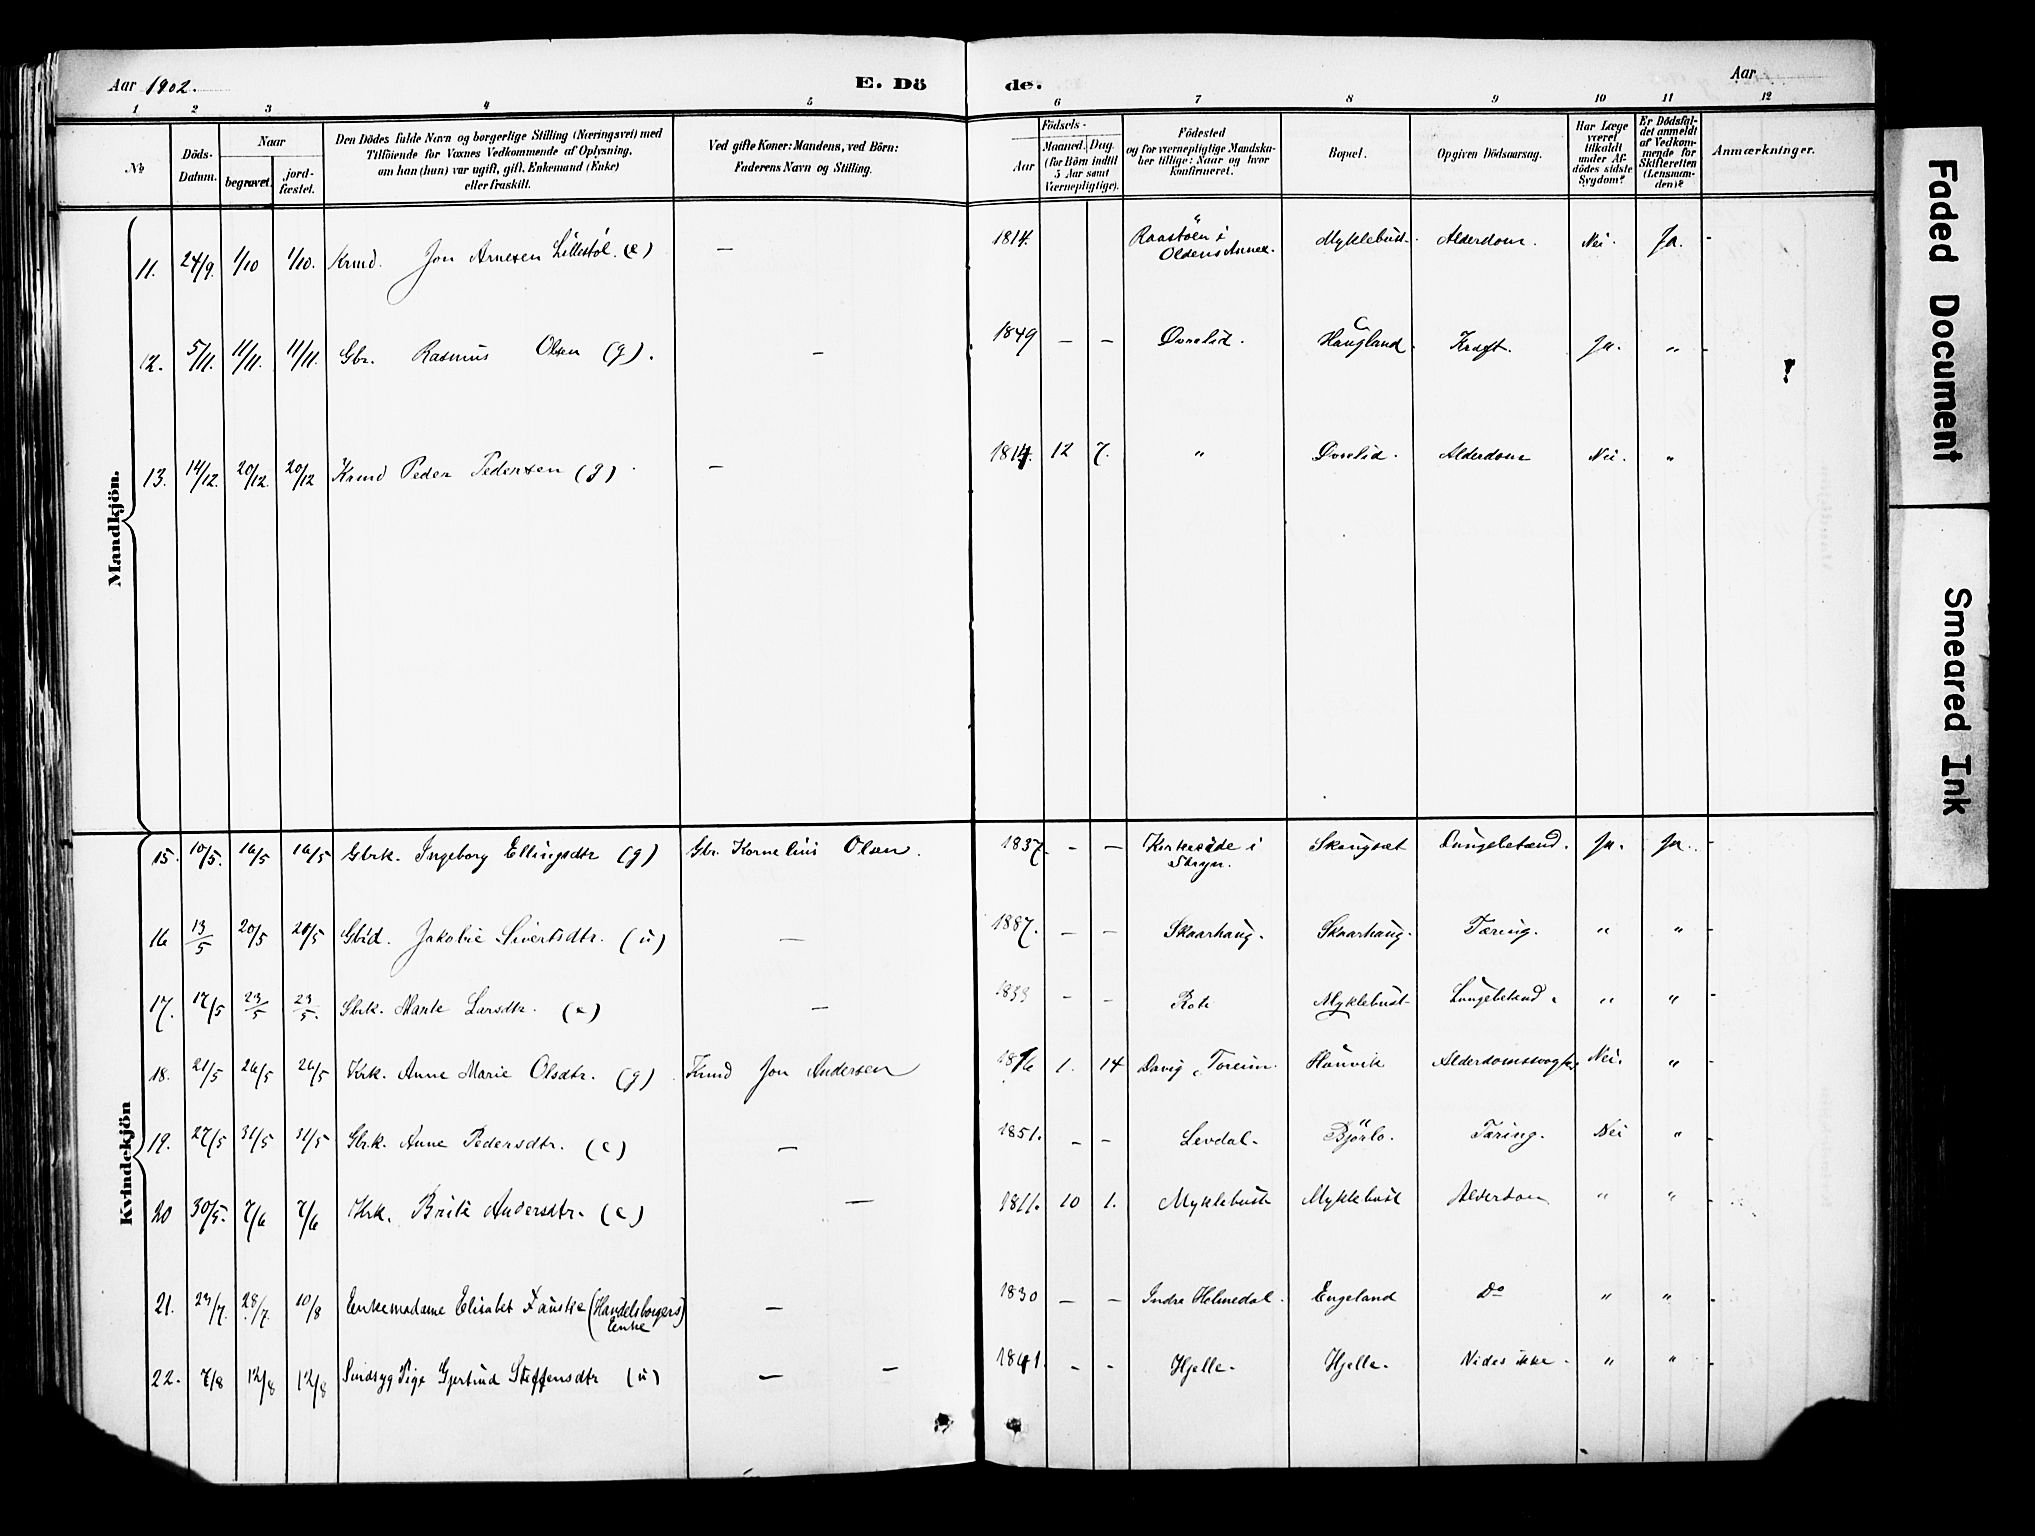 Aar 1902. E. Dö de. Aar
1 2 3 4 5 6 7 8 9 10 11 12
№
Döds-Datum.
Naar
begravet.
jord-fæstet.
Den Dödes fulde Navn og borgerlige Stilling (Næringsvei) med
Tilföiende for Voxnes Vedkommende af Oplysning,
om han (hun) var ugift, gift, Enkemand (Enke)
eller fraskilt.
Ved gifte Koner: Mandens, ved Börn:
Faderens Navn og Stilling.
Födsels-
Aar
Maaned. Dag.
(for Börn indtil
5 Aar samt
Værnepligtige).
Födested
og for værnepligtige Mandska-
ber tillige: Naar og hvor
Konfirmeret.
Bopæl.
Opgiven Dödsaarsag.
Har Læge
været
tilkaldt
under Af-
dödes sidste
Sygdom?
Er Dödsfal-
det anmeldt
af Vedkom-
mende for
Skifteretten
(Lensman-
den)?
Anmærkninger.
Mandkjön.
11. 24/9. 1/10 1/10. Krmd. Jon Arnesen Lillestøl. (e) — 1814. Raastöen i Oldens Annex. Myklebust. Alderdom. Nei. Ja. -
12. 5/11. 11/11. 11/11. Gbr. Rasmus Olsen (g). — 1849 — — Øvrelid. Haugland. Kræft. Ja. " -
13. 14/12. 20/12. 20/12 Krmd Peder Pedersen (g) — 1814. 12 7. " Øvrelid. Alderdom Nei. "
Kvindekjön
15. 10/5. 16/5 16/5 Gbrk. Ingeborg Ellingsdtr (g) Gbr. Kornelius Olsen. 1837. — — Kirkeeide i Stryn. Skaugset Lungebetænd. Ja. Ja. -
16 13/5 20/5 20/5 Gbd. Jakobie Sivertsdtr. (u) — 1887. — — Skaarhaug. Skaarhaug. Tæring. " " -
17. 17/5 23/5 23/5. Gbrk. Marte Larsdtr. (e) — 1833 - - Rote Myklebust Lungebetænd. " " -
18. 21/5 26/5 26/5 Krk. Anne Marie Olsdtr. (g) Krmd Jon Andersen 1816 1. 14 Davig, Toreim. Hauvik Alderdomssvagh. Nei. "
19. 27/5 31/5 31/5 Gbrk. Anne Pedersdtr. (e) — 1851. - - Levdal. Björlo. Tæring. Nei " -
20 30/5. 7/6 7/6 Krk. Brite Andersdtr. (e) — 1811. 10 1. Myklebust Myklebust Alderdom " " -
21. 23/7. 28/7. 10/8 Enkemadame Elisabet Fauske (Handelsborgers) Enke — 1830 — — Indre Holmedal. Engeland Do " " -
22. 7/8 12/8 12/8 Sindsyg Pige Gjertrud Steffensdtr (u) — — 1841. - - Hjelle. Hjelle. Vides ikke. " " -
Faded Document
Smeared Ink